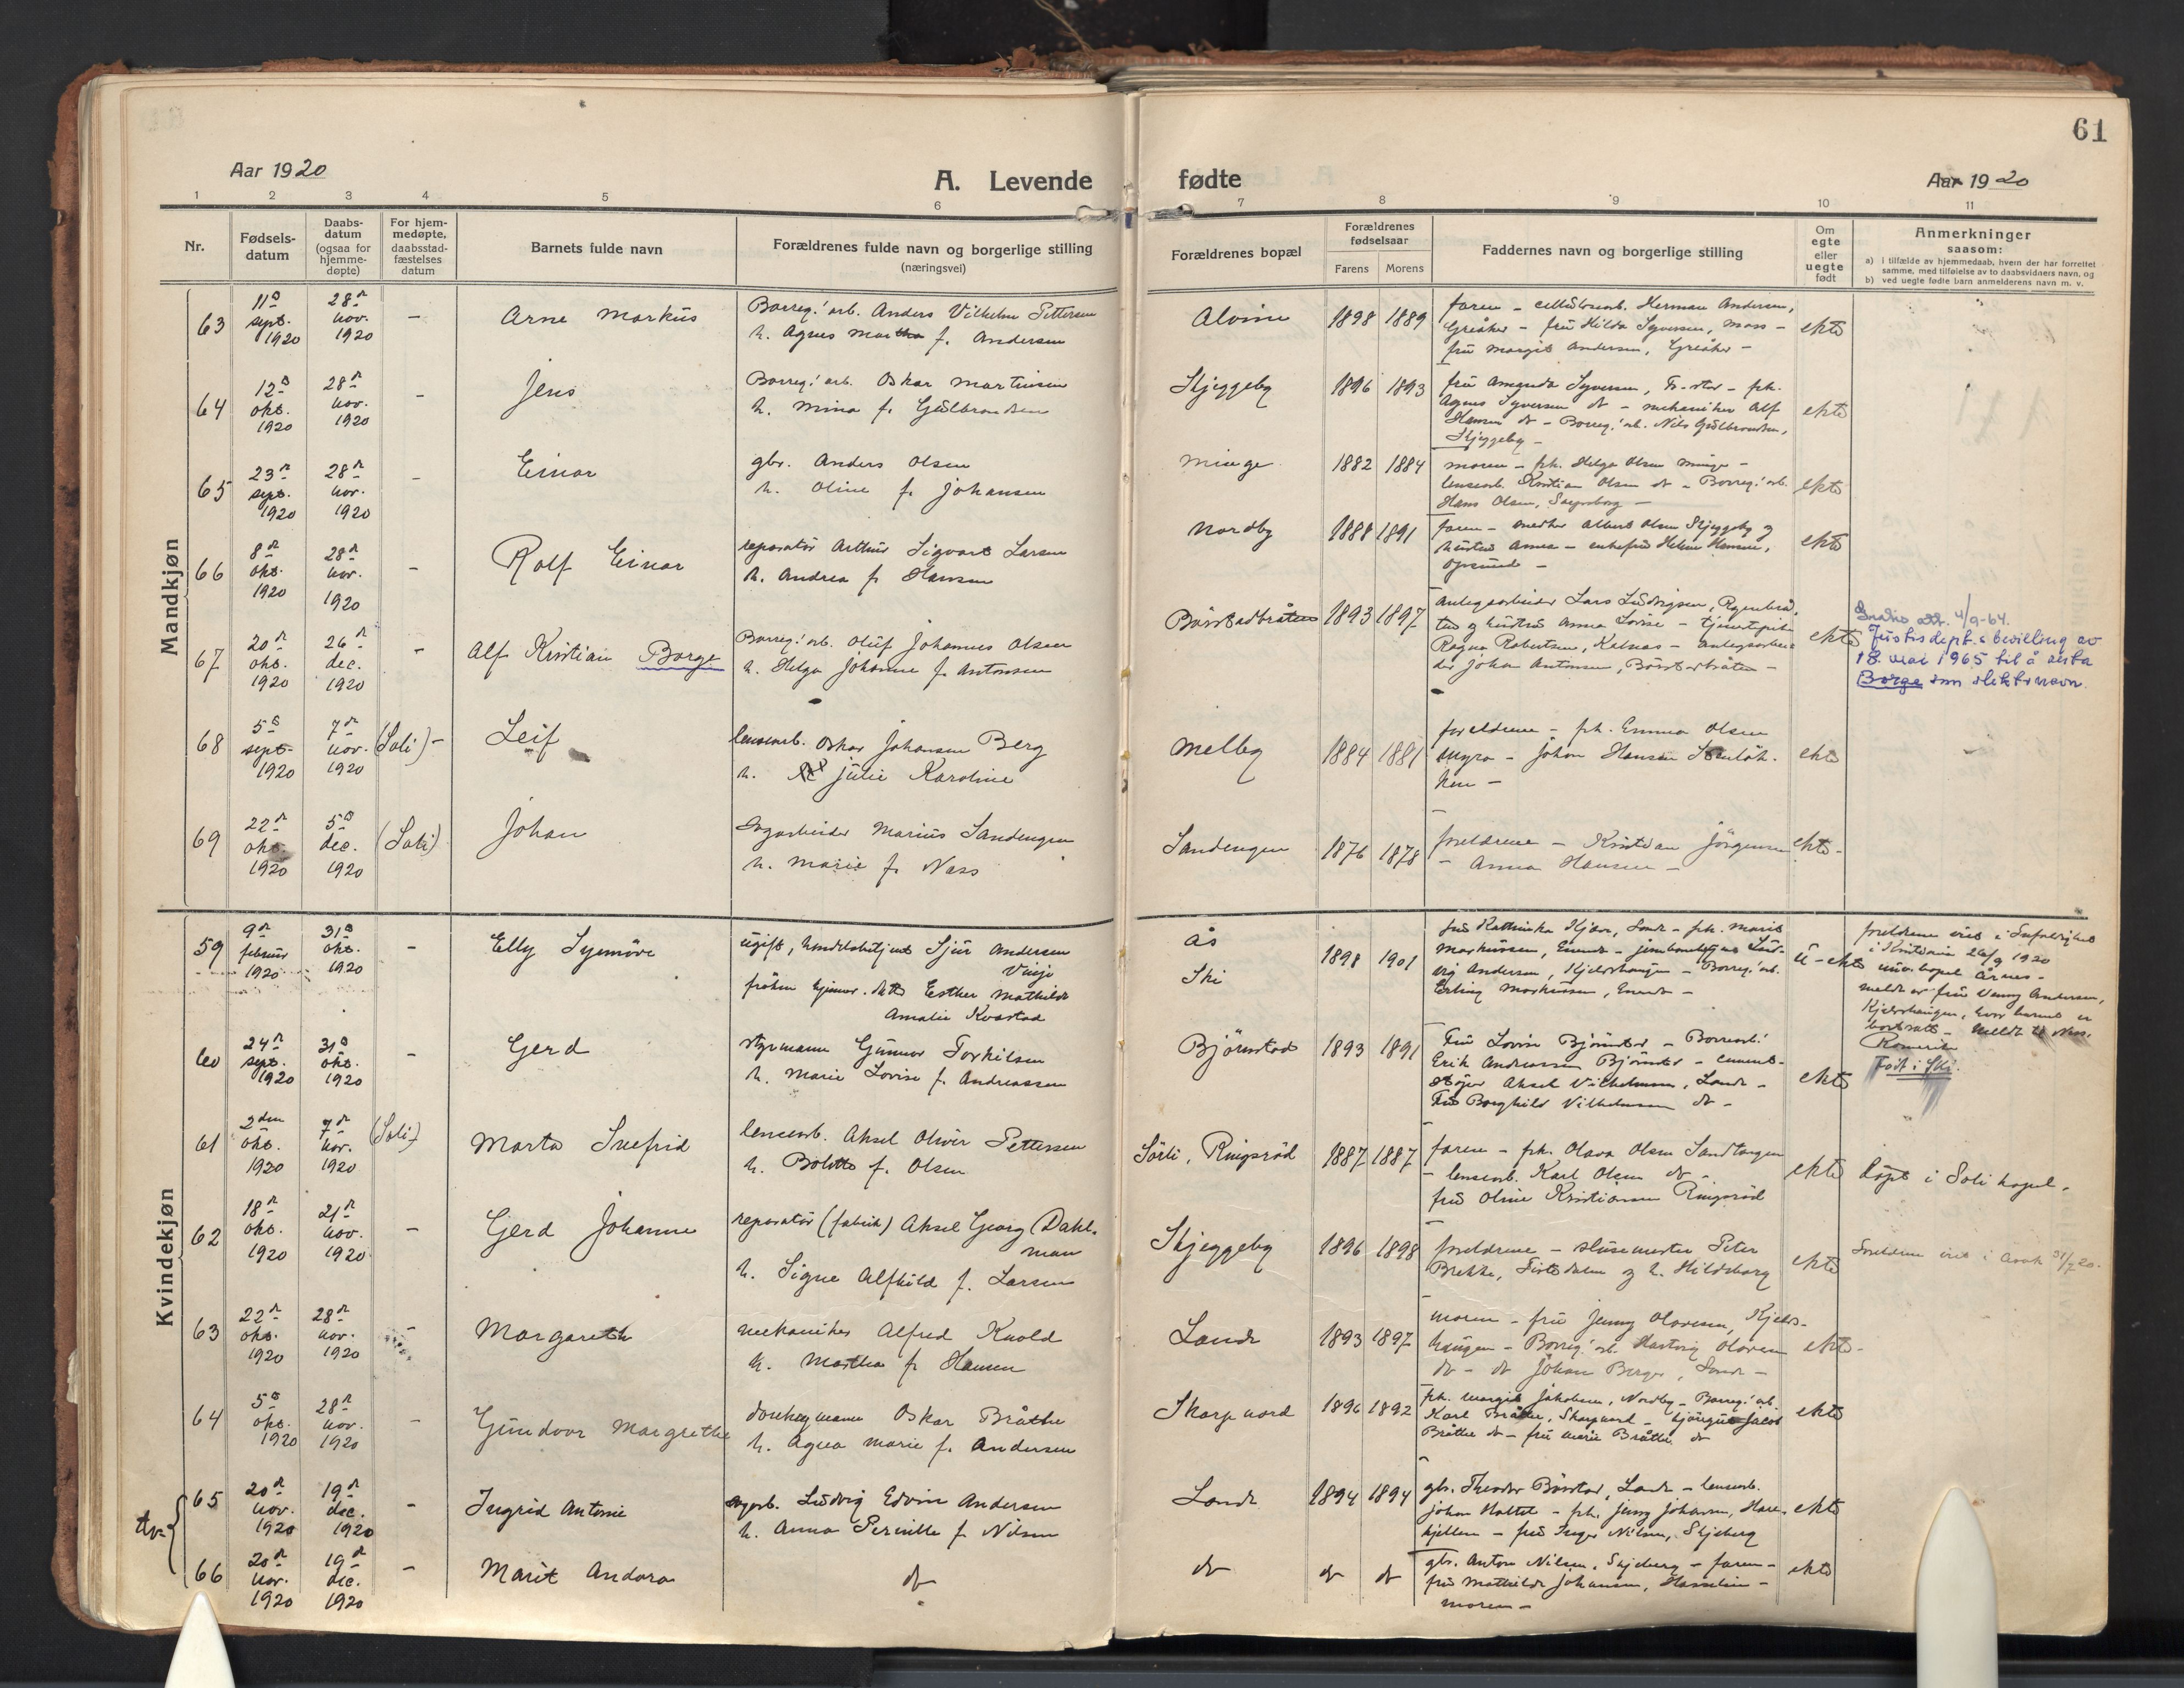 61
Aar 1920
A. Levende
fødte
Aar 1920
1 2 3 4 5 6 7 8 9 10 11
Nr.
Fødsels-
datum
Daabs-
datum
(ogsaa for
hjemme-
døpte)
For hjem-
medøpte,
daabsstad-
fæstelses
datum
Barnets fulde navn
Forældrenes fulde navn og borgerlige stilling
(næringsvei)
Forældrenes bopæl
Forældrenes
fødselsaar
Farens Morens
Faddernes navn og borgerlige stilling
Om
egte
eller
uegte
født
Anmerkninger
saasom:
a) i tilfælde av hjemmedaab, hvem der har forrettet
samme, med tilføielse av to daabsvidners navn, og
b) ved uegte fødte barn anmelderens navn m. v.
Mandkjøn
63
11te
sept.
1920
28de
nov.
1920
-
Arne Markus
Borreg.' arb. Anders Vilhelm Pettersen
h. Agnes Martha f. Andersen
Alvim
1898 1889
faren - cellulosearb. Herman Andersen,
Greåker - fru Hilda Syversen, Moss -
fru Margit Andersen, Greåker -
ekte
64
12te
okt.
1920
28de
nov.
1920
-
Jens
Borreg.' arb. Oskar Martinsen
h. Mina f. Gulbrandsen
Skjeggeby
1896 1893
fru Amanda Syversen, - frk.
Agnes Syversen do - mekaniker Alf
Hansen do - Borreg.' arb. Nils Gulbrandsen,
Skjeggeby -
ekte
65
23de
sept.
1920
28de
nov.
1920
-
Einar
gbr. Anders Olsen
h. Oline f. Johansen
Minge
1882 1884
moren - frk. Helga Olsen Minge -
lensearb. Kristian Olsen do - Borreg.' arb.
Hans Olsen, Sarpsborg -
ekte
66
8de
okt.
1920
28de
nov.
1920
-
Rolf Einar
reparatør Arthur Sigvart Larsen
h. Andrea f. Hansen
Nordby
1888 1891
faren - snedker Albert Olsen Skjeggeby og
hustru Anna - enkefru Helene Hansen,
-
ekte
67
20de
okt.
1920
26de
dec.
1920
-
Alf Kristian Borge
Borreg.' arb. Oluf Johannes Olsen
h. Helga Johanne f. Antonsen
Børstadbråten
1893 1897
anlegsarbeider Lars Ludvigsen,
og hustru Anna Lovise - tjenestepike
Ragna Robertsen, Kalnes - anlegsarbei-
der Johan Antonsen, Børstadbråten -
ekte
att. 4/9-64.
Justisdept.s bevilling av
18. mai 1965 til å anta
Borge som slektsnavn.
68
5te
sept.
1920
7de
nov.
1920
(Soli) -
Leif
lensearb. Oskar Johansen Berg
h. Julie Karoline
Melby
1884 1881
foreldrene - frk. Emma Olsen
Myra - Johan Hansen
-
ekte
69
22de
okt.
1920
5te
dec.
1920
(Soli)
Johan
Marius Sandengen
h. Marie f. Næss
Sandengen
1876 1878
foreldrene - Kristian Jörgensen
- Anna Hansen -
ekte -
Kvindekjøn
59
9de
februar
1920
31te
okt.
1920
-
Elly Synnöve
ugift, handelsbetjent Sjur Andersen
Vinje
fröken hjemmev. datter Esther Mathilde
Amalie Kvastad
ås
Ski
1898 1901
fru Kathinka Kjær, Sande - frk. Marie
Markussen, - Lud-
vig Andersen, Kjelvshaugen - Borreg.' arb.
Erling Markussen, -
u-ekte
foreldrene viet i Sofienberg
i Kristiania 26/9 1920
Årnes -
meldt av fru Venny Andersen,
Kjelvshaugen, hvor barnet er
bortsatt - Meldt til Nes,
Romerike
Født i Ski.
60
24de
sept.
1920
31te
okt.
1920
-
Gerd
styrmann Gunnar Torkilsen
h. Marie Lovise f. Andreassen
Björnstad
1893 1891
Fru Lovise Björnstad -
Erik Andreassen Björnstad - cement-
støper Aksel Vilhelmsen, Sande -
Fru Borghild Vilhelmsen do -
ekte
61
2den
okt.
1920
7de
nov.
1920
(Soli)
Marta Snefrid
lensearb. Aksel Oliver Pettersen
h. Bolette f. Olsen
Sörli, Ringsröd
1887 1887
faren - frk. Olava Olsen Sandtangen
- lensearb. Karl Olsen do -
fru Oline Kristiansen Ringsröd
ekte
döpt i Soli kapel.
62
18de
okt.
1920
21de
nov.
1920
-
Gerd Johanne
reparatör (fabrik) Aksel Georg Dahl-
man
h. Signe Alfhild f. Larsen
Skjeggeby
1896 1898
foreldrene - slusemester Peter
Brekke, og h. Hildeborg
ekte
Foreldrene viet i 31/7 20.
63
22de
okt.
1920
28de
nov.
1920
-
Margareth
mekaniker Alfred Kvold
h. Martha f. Hansen
Sande
1893 1897
moren - fru Jenny Olavesen, Kjelvs-
haugen - Borreg.' arb. Hartvig Olavesen
do - do Johan Berger, Sande -
ekte -
64
5te
okt.
1920
28de
nov.
1920
-
Gundvor Margrethe
donkeymann Oskar Bråthe
h. Agna Marie f. Andersen
Skarpnord
1896 1892
frk. Margit Jakobsen, Nordby - Borreg.' arb.
Karl Bråthe, Skarpnord - sjöegut Jacob
Bråthe do - fru Marie Bråthe do
ekte
Tv.
65
20de
nov.
1920
19de
dec.
1920
-
Ingrid Antonie
Ludvig Edvin Andersen
h. Anna Pernille f. Nilsen
Sande
1894 1894
gbr. Theodor Börstad, Sande - lensearb.
Johan Holtet - frk. Jenny Johansen, Hare-
kjellen - fru Inger Nilsen, Skjeberg
ekte
66
20de
nov.
1920
19de
dec.
1920
-
Marit Andora
do
do
do do
gbr. Anton Nilsen, Skjeberg - faren -
fru Mathilde Johansen, -
moren -
ekte